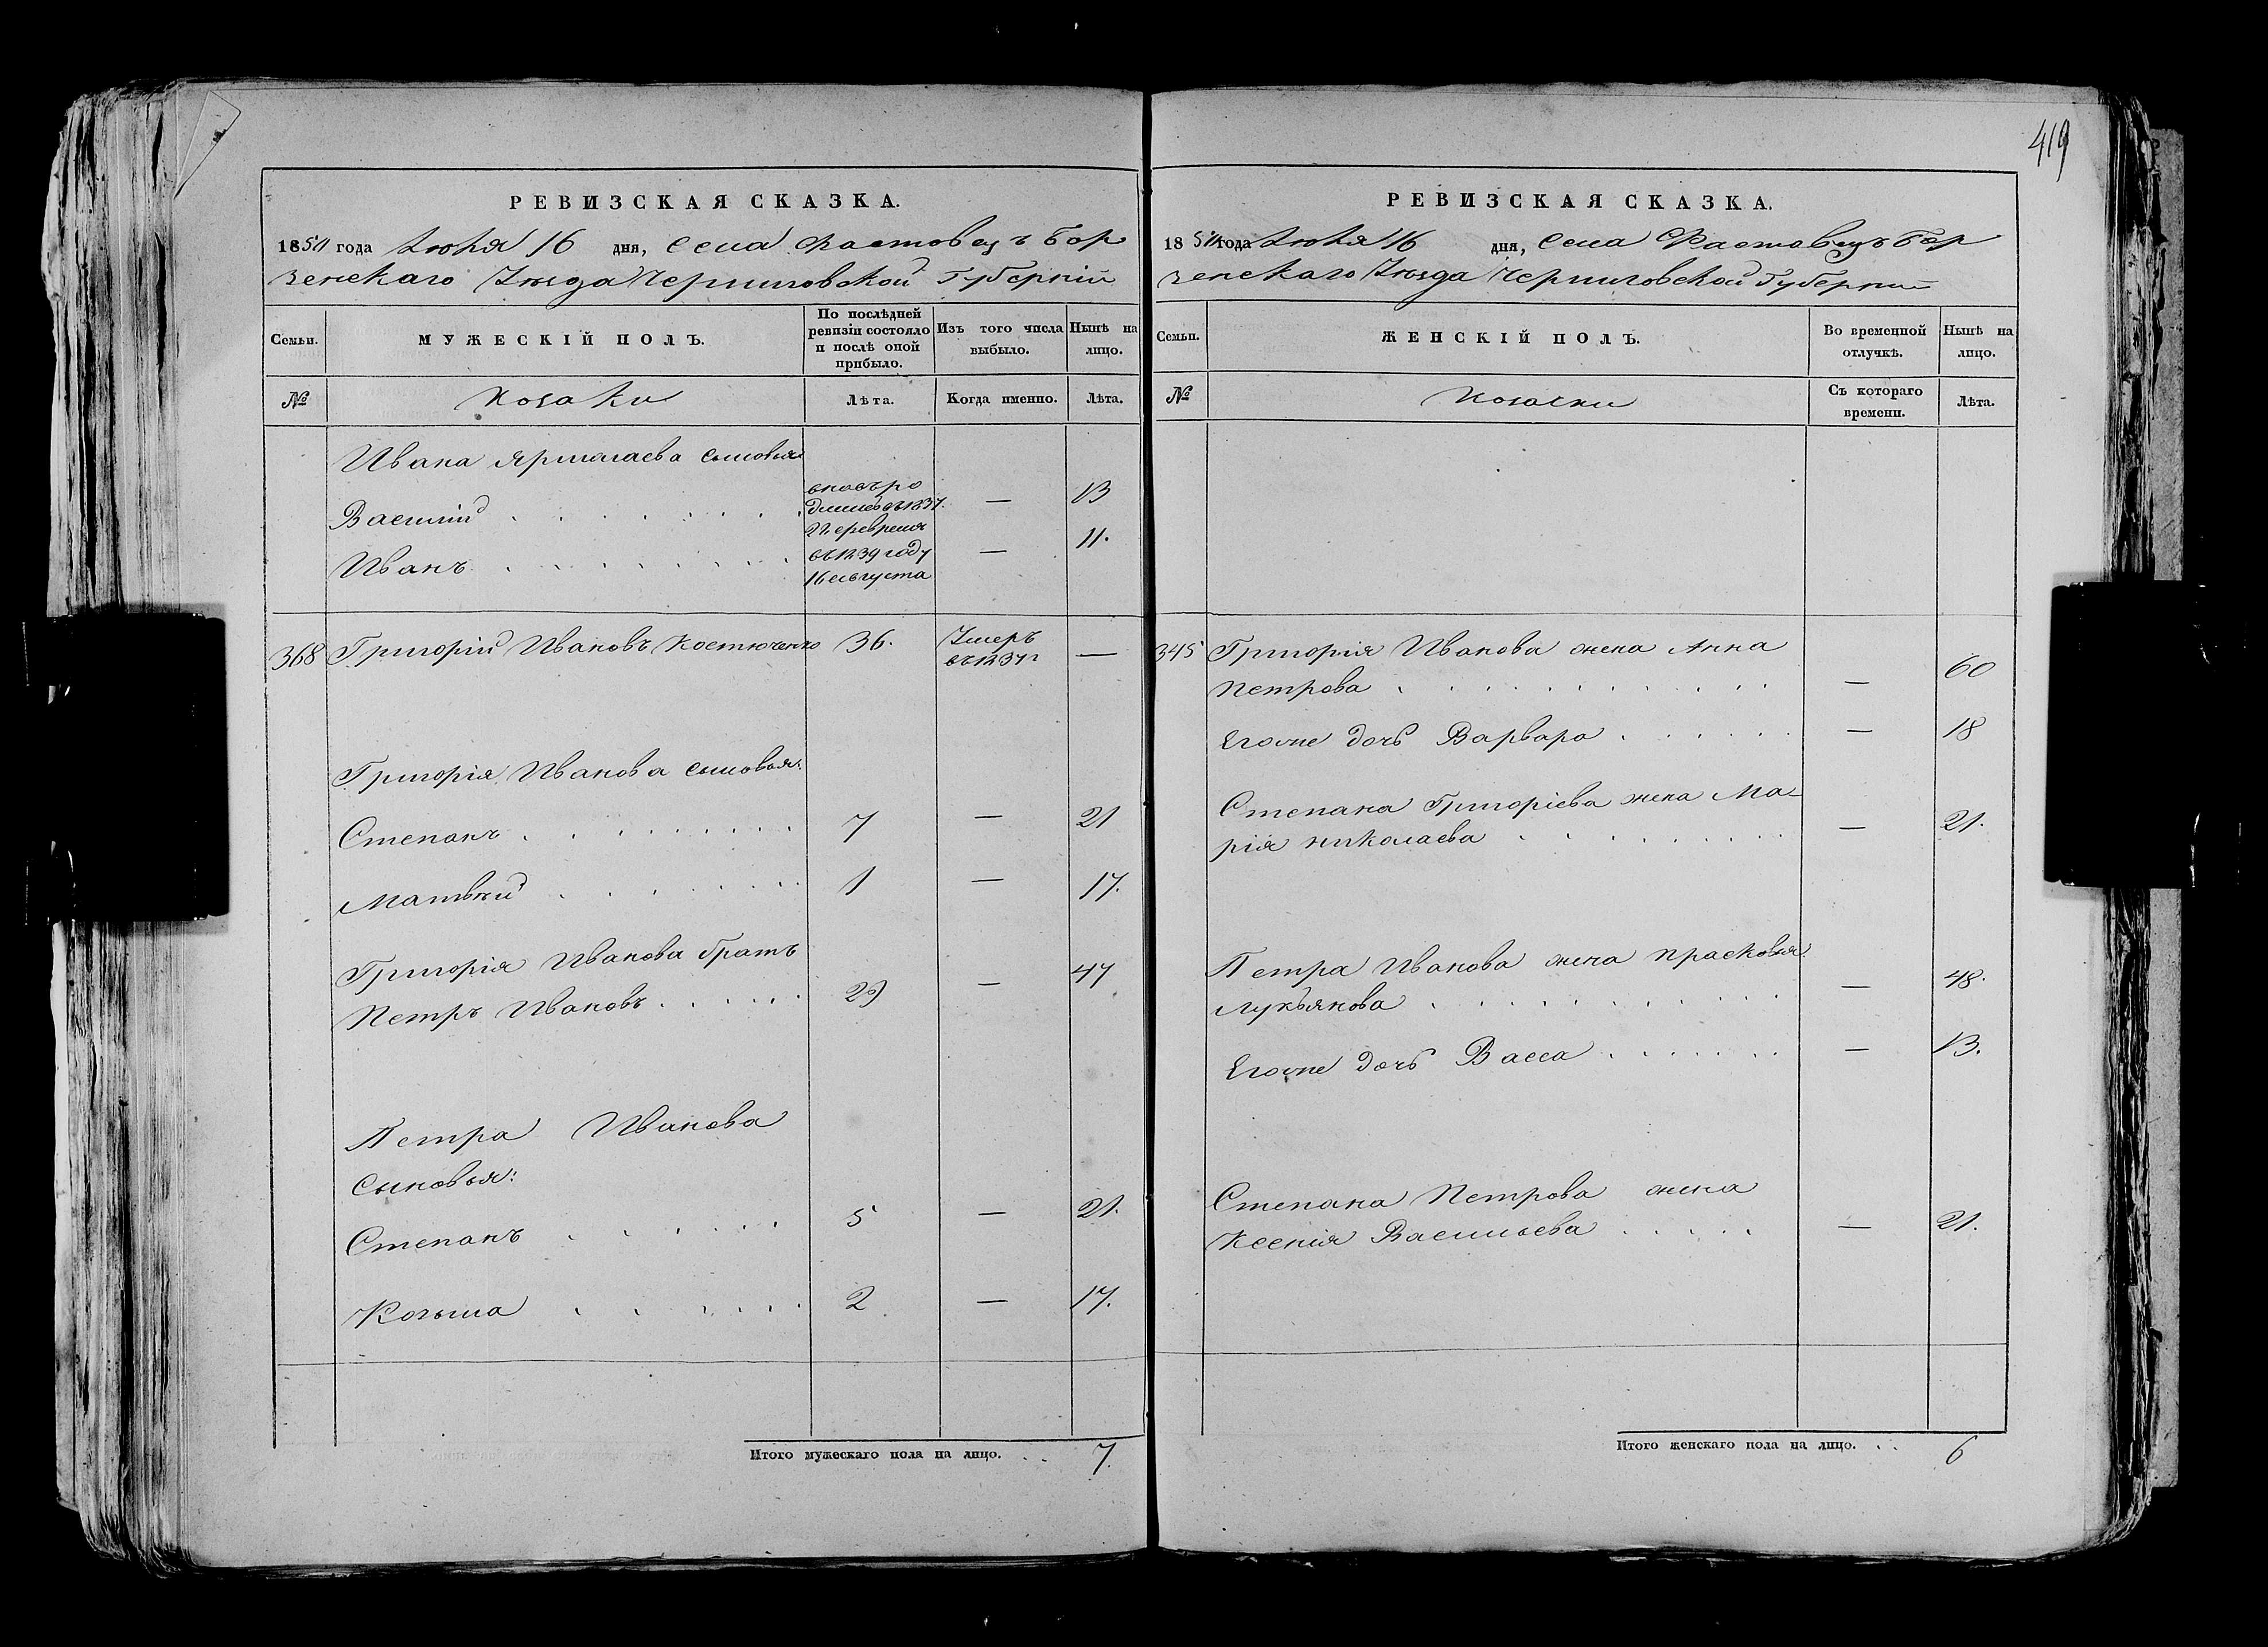 419
РЕВИЗСКАЯ СКАЗКА.
1850 года Июня 16 дня, Села Фастовецъ Бор
зенскаго Уѣзда Черниговской Губерніи
Семьи.
МУЖЕСКІЙ ПОЛЪ.
По послѣдней ревизіи состояло и послѣ оной прибыло.
Изъ того числа выбыло.
Нынѣ на лицо.
№
Козаки
Лѣта.
Когда именно.
Лѣта.
Ивана сыновья
Василий — 13
Иванъ въ 1839 году 16 августа — 11.
368 Григорій Ивановъ Костюченко 36. Умеръ —
Григорія Иванова сыновья:
Степанъ 7 — 21
Матвѣй 1 — 17.
Григорія Иванова братъ
Петръ Ивановъ 29 — 47
Петра Иванова
сыновья:
Степанъ 5 — 21.
Козьма 2 — 17.
Итого мужескаго пола на лицо. . . 7.
РЕВИЗСКАЯ СКАЗКА.
1850 года Июня 16 дня, Села Фастовецъ Бор
зенскаго Уѣзда Черниговской Губерніи
Семьи.
ЖЕНСКІЙ ПОЛЪ.
Во временной отлучкѣ.
Нынѣ на лицо.
№
Козачки
Съ котораго времени.
Лѣта.
345 Григорія Иванова жена Анна
Петрова — 60
Егоже дочь Варвара — 18
Степана Григоріева жена Ма-
рія Николаева — 21.
Петра Иванова жена Прасковья
Лукьянова — 48.
Егоже дочь Васса — 13.
Степана Петрова жена
Ксенія Васильева — 21.
Итого женскаго пола на лицо. . . 6